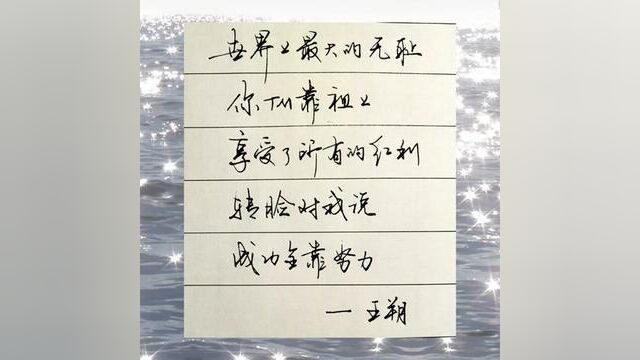 世界上最大的无耻
你TM靠祖上
享受了所有的红利
转脸对我说
成功全靠努力
— 王朔